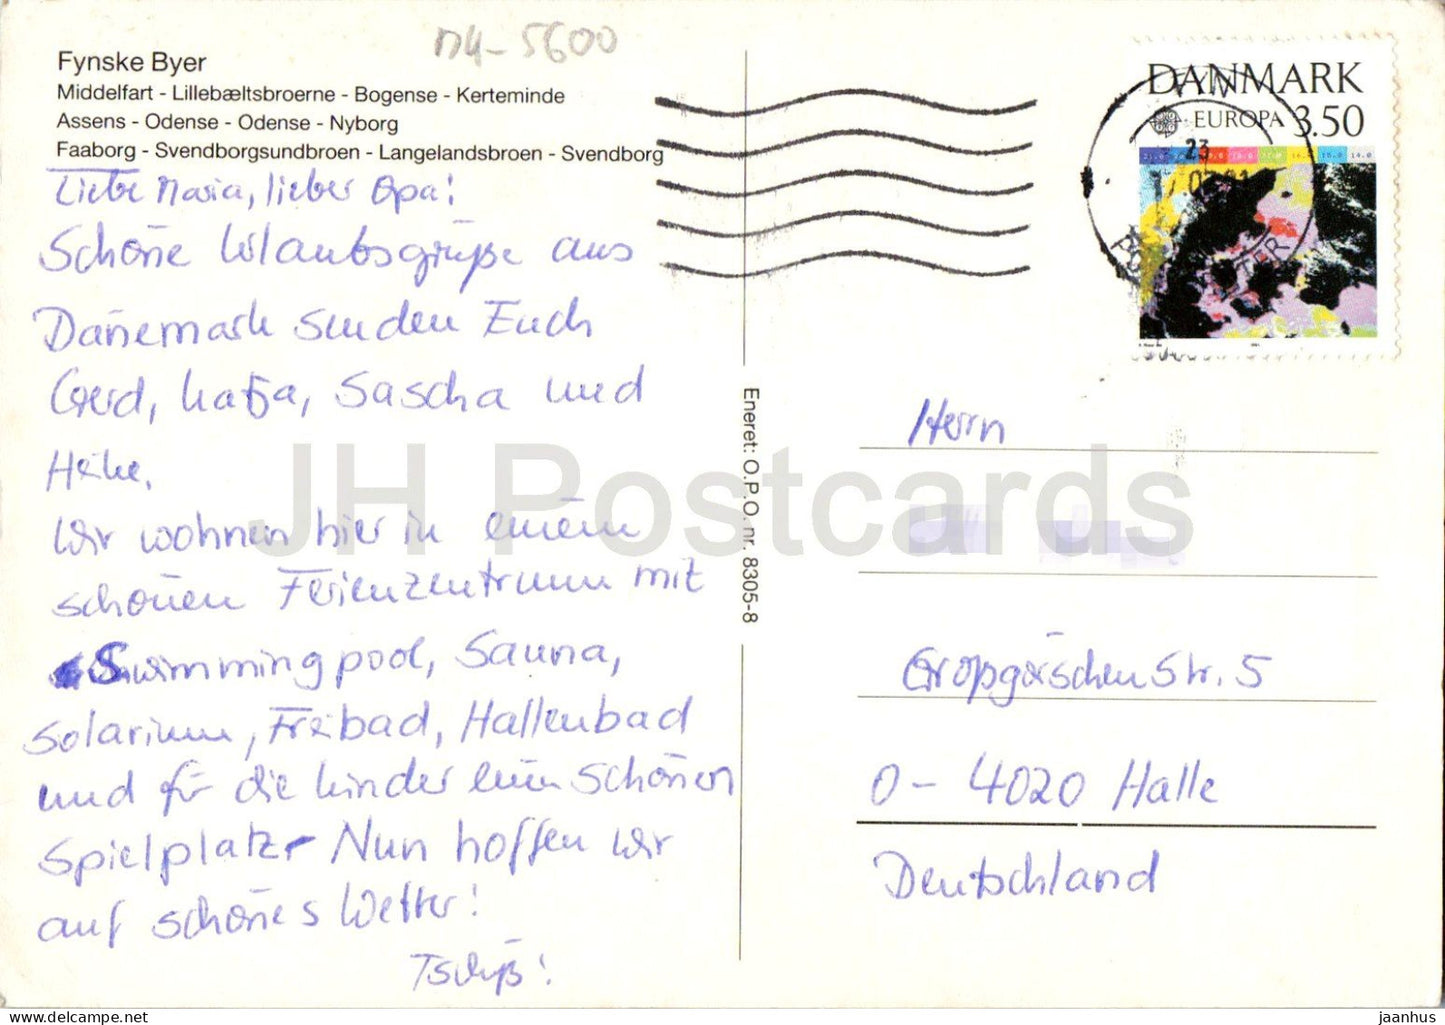 DK-5600
Fynske Byer
Middelfart - Lillebæltsbroerne - Bogense - Kerteminde
Assens - Odense - Odense - Nyborg
Faaborg - Svendborgsundbroen - Langelandsbroen - Svendborg
Liebe Maria, lieber Opa!
Schöne Urlaubsgrüße aus
Dänemark senden Euch
Gerd, Katja, Sascha und
Heike.
Wir wohnen hier in einem
schönen Ferienzentrum mit
Swimmingpool, Sauna,
Solarium, Freibad, Hallenbad
und für die Kinder einen schönen
Spielplatz. Nun hoffen wir
auf schönes Wetter!
Tschüß!
Eneret: O.P.O. nr. 8305-8
DANMARK
EUROPA 3.50
23
Herrn
Großgörschenstr. 5
O-4020 Halle
Deutschland
JH Postcards
jaanhus